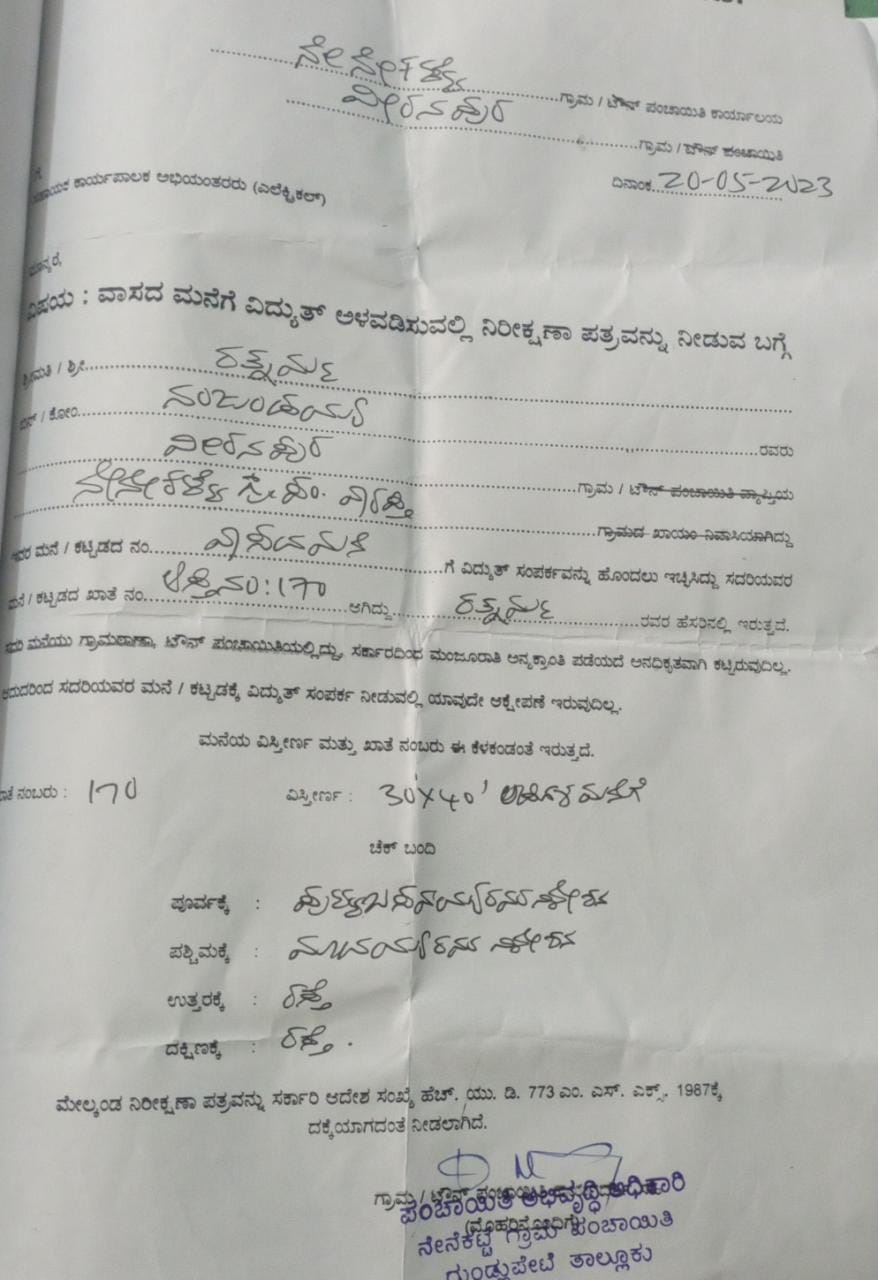 ನೇನೇಕಟ್ಟೆ ಗ್ರಾಮ / ಟೌನ್ ಪಂಚಾಯಿತಿ ಕಾರ್ಯಾಲಯ
ವೀರನಪುರ ಗ್ರಾಮ / ಟೌನ್ ಪಂಚಾಯಿತಿ
ದಿನಾಂಕ 20-05-2023
ಕಾರ್ಯಪಾಲಕ ಅಭಿಯಂತರರು (ಎಲೆಕ್ಟ್ರಿಕಲ್)
ವಿಷಯ : ವಾಸದ ಮನೆಗೆ ವಿದ್ಯುತ್ ಅಳವಡಿಸುವಲ್ಲಿ ನಿರೀಕ್ಷಣಾ ಪತ್ರವನ್ನು ನೀಡುವ ಬಗ್ಗೆ
ಶ್ರೀಮತಿ / ಶ್ರೀ ರತ್ನಮ್ಮ
ಬಿನ್ / ಕೋಂ ನಂಜುಂಡಯ್ಯ ರವರು
ವೀರನಪುರ ಗ್ರಾಮ / ಟೌನ್ ಪಂಚಾಯಿತಿ ವ್ಯಾಪ್ತಿಯ
ನೇನೇಕಟ್ಟೆ ಗ್ರಾ. ಪಂ. ವ್ಯಾಪ್ತಿ ಗ್ರಾಮದ ಖಾಯಂ ನಿವಾಸಿಯಾಗಿದ್ದು
ಇವರ ಮನೆ / ಕಟ್ಟಡದ ನಂ. ವಾಸದ ಮನೆ ಗೆ ವಿದ್ಯುತ್ ಸಂಪರ್ಕವನ್ನು ಹೊಂದಲು ಇಚ್ಛಿಸಿದ್ದು ಸದರಿಯವರ
ಮನೆ / ಕಟ್ಟಡದ ಖಾತೆ ನಂ. ಆಸ್ತಿ ನಂ: 170 ಆಗಿದ್ದು ರತ್ನಮ್ಮ ರವರ ಹೆಸರಿನಲ್ಲಿ ಇರುತ್ತದೆ.
ಸದರಿ ಮನೆಯು ಗ್ರಾಮಠಾಣಾ, ಟೌನ್ ಪಂಚಾಯಿತಿಯಲ್ಲಿದ್ದು, ಸರ್ಕಾರದಿಂದ ಮಂಜೂರಾತಿ ಅನ್ಯಕ್ರಾಂತಿ ಪಡೆಯದೆ ಅನಧಿಕೃತವಾಗಿ ಕಟ್ಟಿರುವುದಿಲ್ಲ.
ಆದುದರಿಂದ ಸದರಿಯವರ ಮನೆ / ಕಟ್ಟಡಕ್ಕೆ ವಿದ್ಯುತ್ ಸಂಪರ್ಕ ನೀಡುವಲ್ಲಿ ಯಾವುದೇ ಆಕ್ಷೇಪಣೆ ಇರುವುದಿಲ್ಲ.
ಮನೆಯ ವಿಸ್ತೀರ್ಣ ಮತ್ತು ಖಾತೆ ನಂಬರು ಈ ಕೆಳಕಂಡಂತೆ ಇರುತ್ತದೆ.
ಖಾತೆ ನಂಬರು : 170 ವಿಸ್ತೀರ್ಣ : 30'X40'
ಚೆಕ್ ಬಂದಿ
ಪೂರ್ವಕ್ಕೆ : ನಿವೇಶನ
ಪಶ್ಚಿಮಕ್ಕೆ : ನಿವೇಶನ
ಉತ್ತರಕ್ಕೆ : ರಸ್ತೆ
ದಕ್ಷಿಣಕ್ಕೆ : ರಸ್ತೆ.
ಮೇಲ್ಕಂಡ ನಿರೀಕ್ಷಣಾ ಪತ್ರವನ್ನು ಸರ್ಕಾರಿ ಆದೇಶ ಸಂಖ್ಯೆ ಹೆಚ್. ಯು. ಡಿ. 773 ಎಂ. ಎಸ್. ಎಕ್ಸ್. 1987ಕ್ಕೆ
ದಕ್ಕೆಯಾಗದಂತೆ ನೀಡಲಾಗಿದೆ.
ಗ್ರಾಮ / ಟೌನ್ ಪಂಚಾಯಿತಿ
ಪಂಚಾಯಿತಿ ಅಭಿವೃದ್ಧಿ ಅಧಿಕಾರಿ
(ಮೊಹರಿನೊಂದಿಗೆ)
ನೇನೆಕಟ್ಟೆ ಗ್ರಾಮ ಪಂಚಾಯಿತಿ
ಗುಂಡ್ಲುಪೇಟೆ ತಾಲ್ಲೂಕು